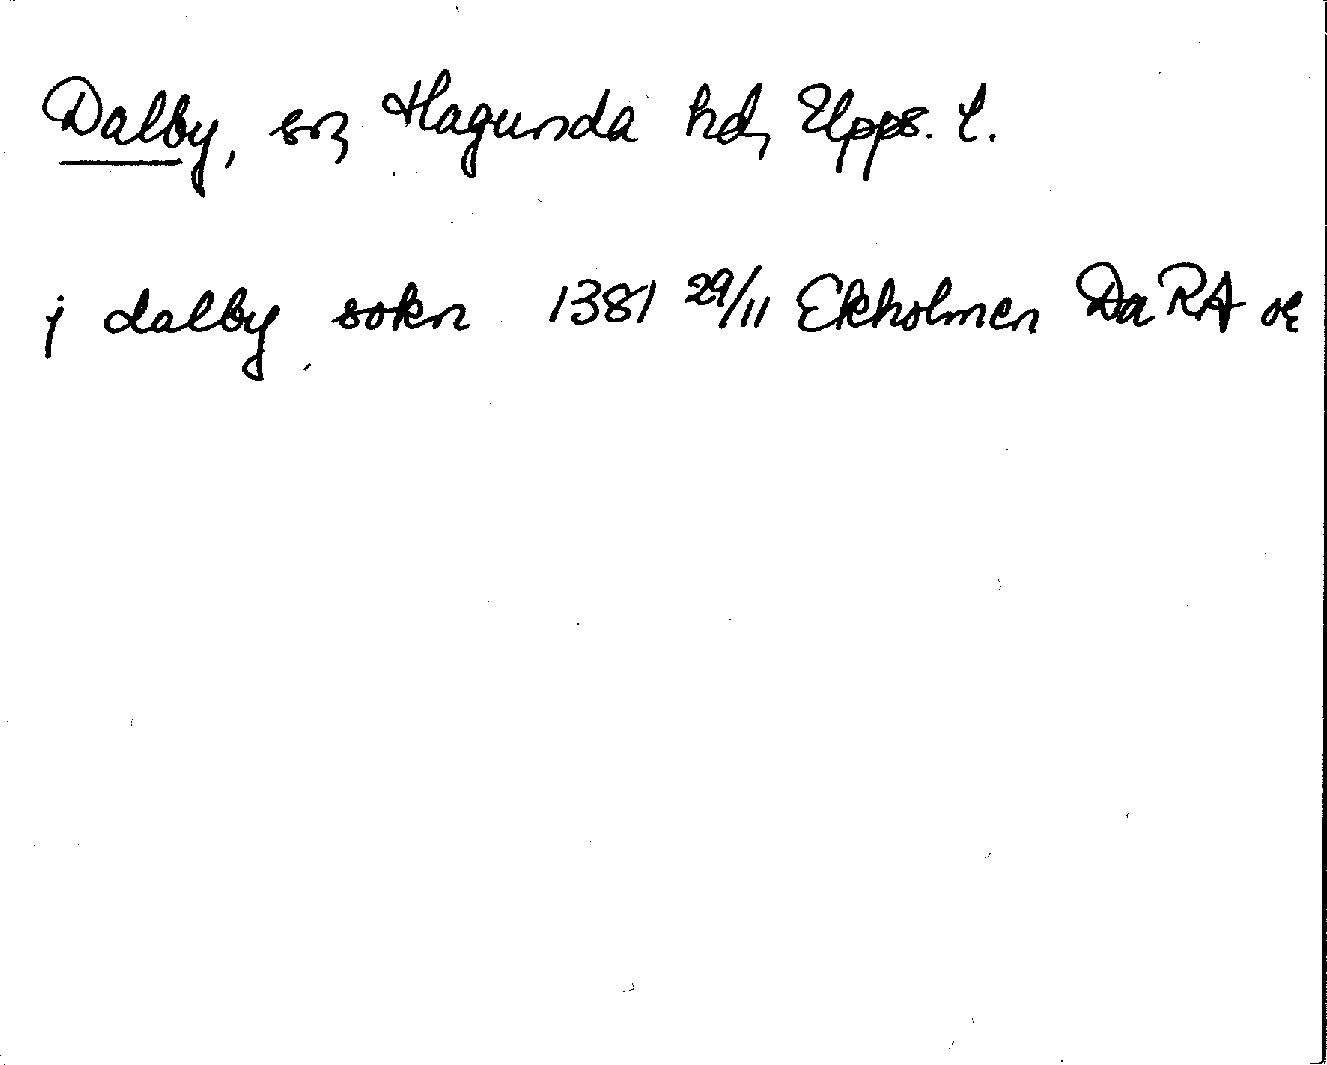 Dalby, sn, Hagunda hd, Upps. l.
j dalby sokn 1381 29/11 Ekholmen Da RA or